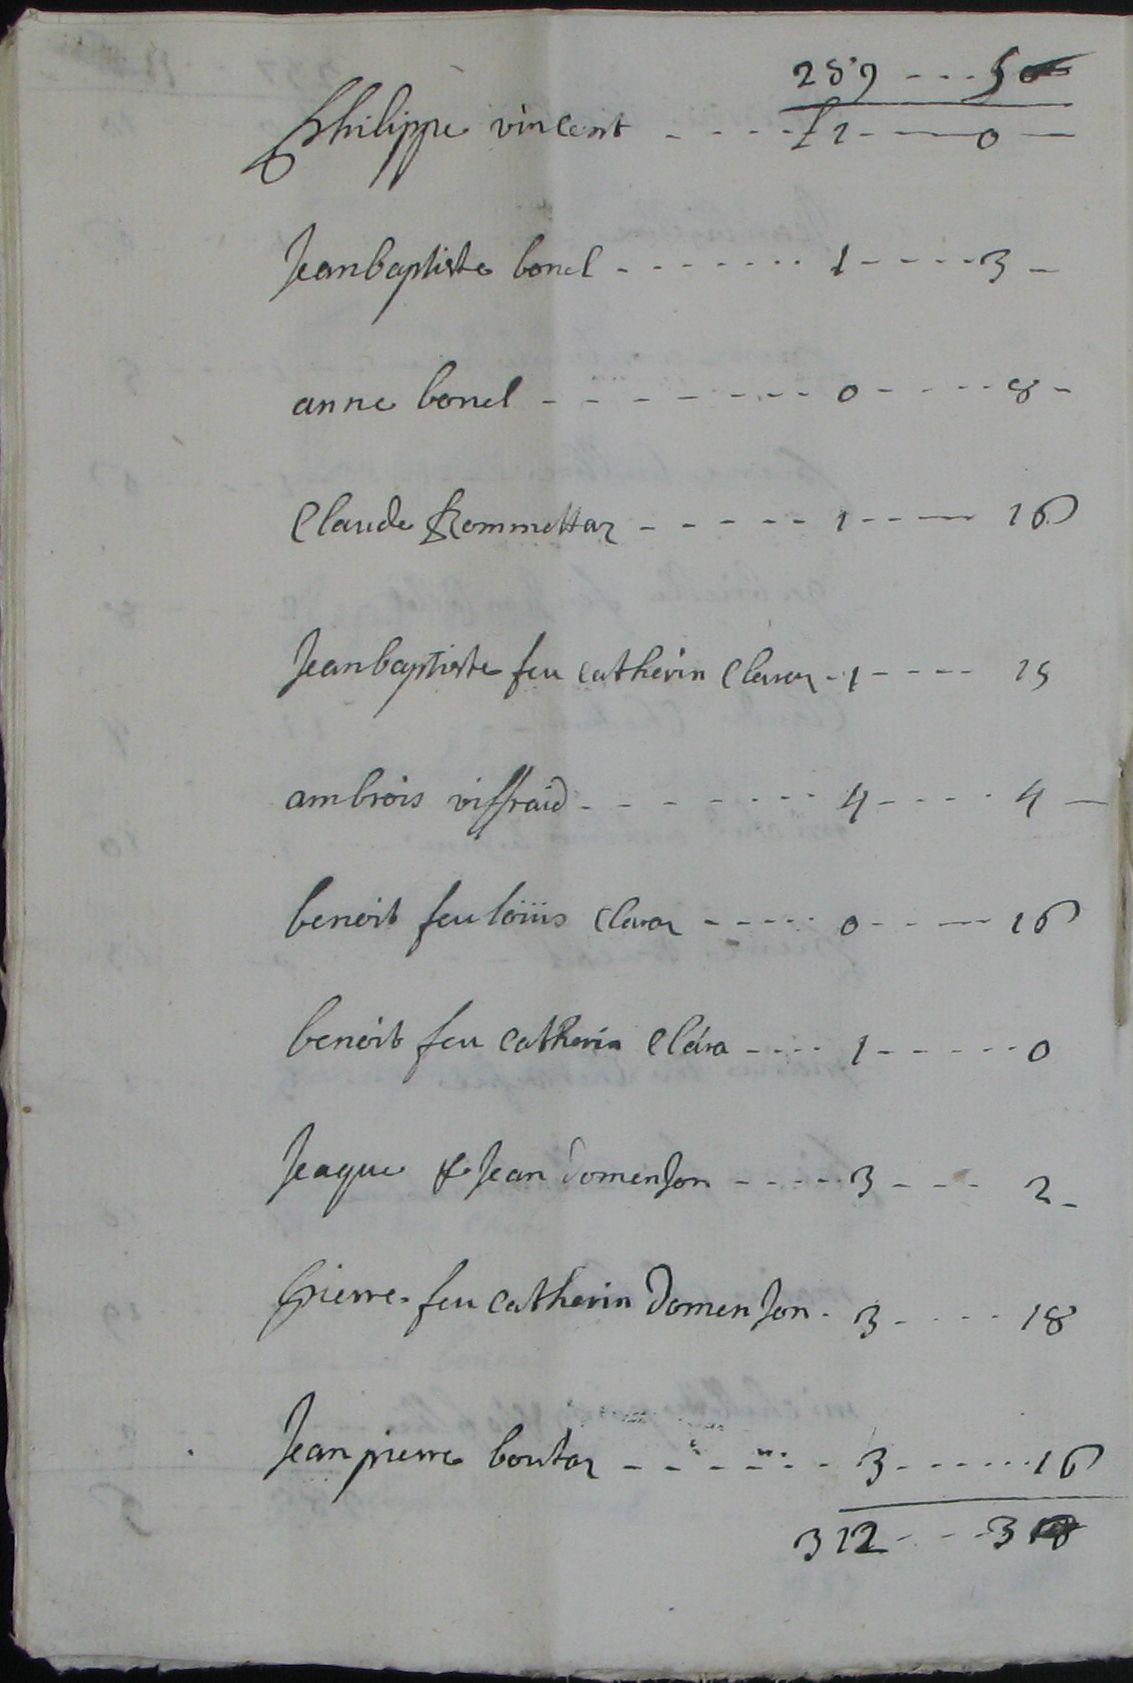 289 --- 5
Philippe vincent ---- £1 --- 0 -
Jeanbaptiste bonel -------- 1 ----- 3 -
anne bonel -------- 0 ----- 8 -
Claude Rommettaz ------ 1 ---- 16
Jeanbaptiste feu catherin Claraz - 1 ---- 15
ambrois viffraid -------- 4 ---- 4 -
benoit feu loüis Claraz ----- 0 ---- 16
benoit feu Catherin Clara ---- 1 ------ 0
Jeaque & Jean domenson ----- 3 --- 2 -
Pierre feu catherin Domenson - 3 ---- 18
Jean pierre boutaz ------- 3 ------ 16
312 --- 3